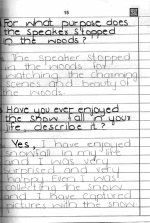 For what purpose does
the speaker stopped
in the woods?
The speaker stopped
in the woods for
watching the charming
scenes and beauty of
the woods.
Have you ever enjoyed
the snow fall in your
life, describe it?
Yes, I have enjoyed
snowfall in my life
and I was very
surprised and very
happy. Even I was
collecting the snow
and I have captured
pictures with the snow.